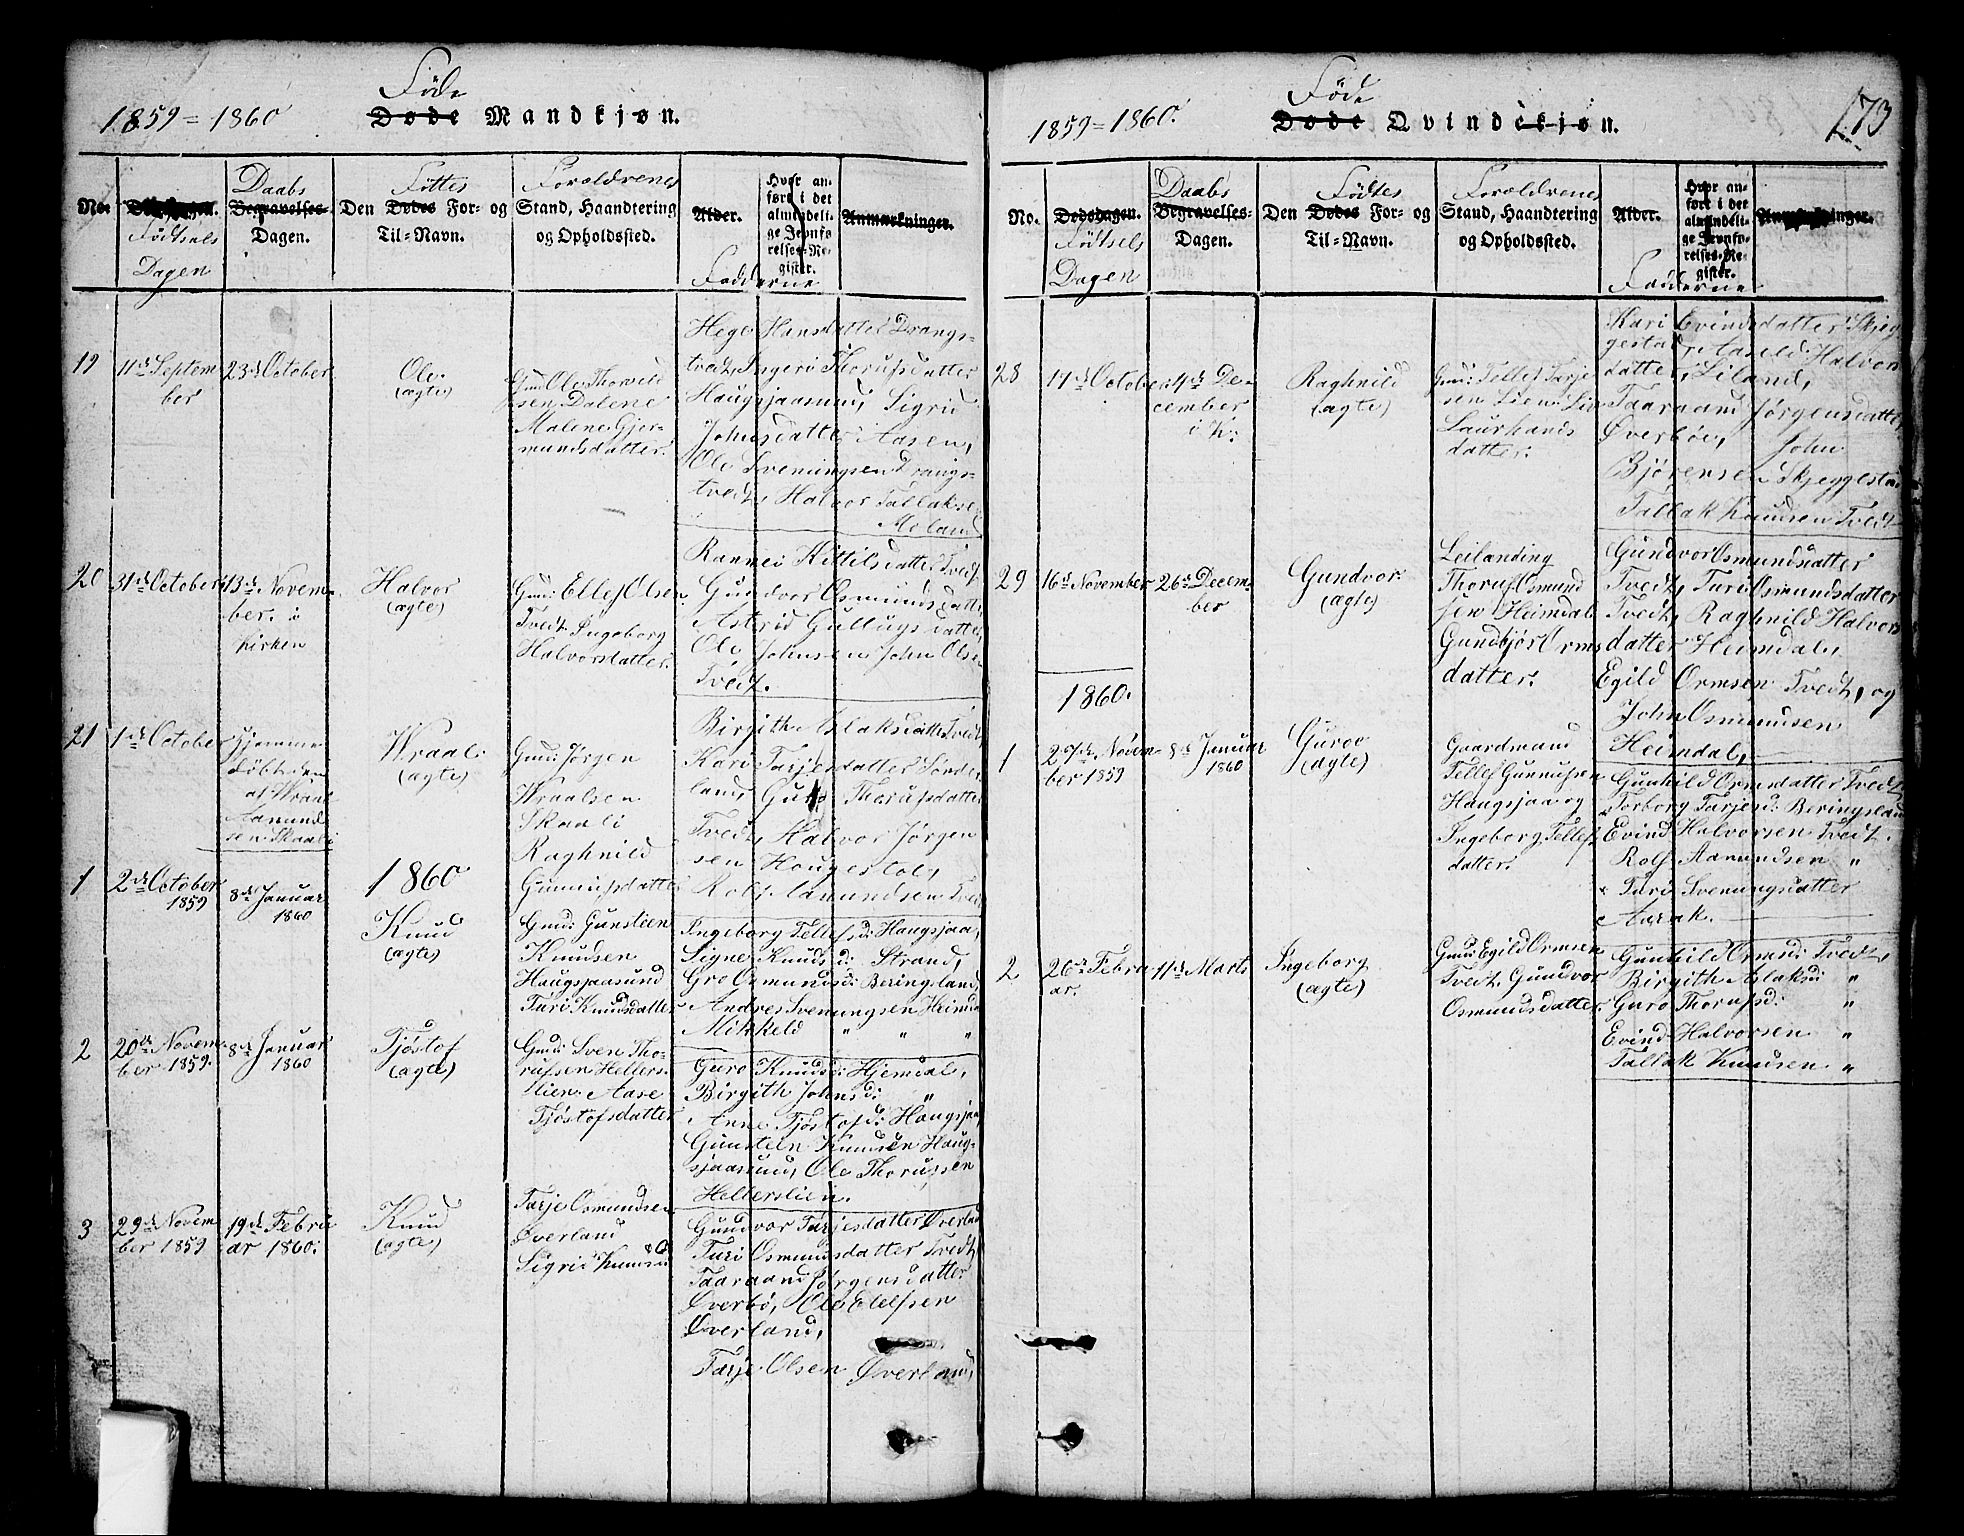 1859 = 1860
Føde
Døde Mandkjøn.
No.
Fødsels
Dagen
Daabs
Begravelses-
Dagen.
Føttes
Den Dødes For- og
Til-Navn.
Forældrenes
Stand, Haandtering
og Opholdssted.
Alder.
Hvor an-
ført i det
almindeli-
ge Jevnfø-
relses-Re-
gister.
Anmærkninger.
Fadderne
19
11te Septem
ber
23de October
Ole.
(ægte)
Gmd: Ole Thorvild
sen Dalene
Malene Gjer-
mundsdatter.
Hege Hansdatter Drangs-
tvedt, Ingerø Thorufsdatter
Haugsjaasund, Sigrid
Johnsdatter Aasen,
Ole Sveningsen Drangs-
tvedt, Halvor Tallakse
Moland
20
31te October
13de Novem-
ber. i
Kirken
Halvor
(ægte)
Gmd: Ellef Olsen
Tvedt. Ingeborg
Halvorsdatter.
Rannei Kittilsdatter Tvedt
Gundvor Osmundsdatter
Astrid Gullugsdatter,
Ole Johnsen John Olsen
Tvedt.
21
1ste October
Hjemme
døbt den
af Wraal
Aamund
sen Skaali
Wraal.
(ægte)
Gmd: Jørgen
Wraalsen
Skaali
Raghnild
Gunnufsdatter
Birgith Aslaksdatter Tvedt,
Kari Tarjesdatter Sønde
land, Guro Thorufsdatter
Tvedt, Halvor Jørgen
sen Haugestol,
Rolf Aamundsen Tvedt
1860
1
2de October
1859
8de Januar
1860
Knud
(ægte)
Gmd: Gunstien
Knudsen
Haugsjaasund
Turi Knudsdatter
Ingeborg Tellefsd: Haugsjaa,
Signe Knudsd: Strand,
Gro Osmundsd: Beringsland,
Andres Svenungsen Heimdal
Mikkeld " "
2
20de Novem-
ber 1859.
8de Januar
1860
Tjøstof
(ægte)
Gmd: Sven Tho-
rufsen Hellers-
lien. Aase
Tjøstofsdatter
Guro Knudsd: Hjemdal,
Birgith Johnsd: "
Anne Tjøstofsd: Haugsjaa,
Gunsteen Knudsen Haug-
sjaasund, Ole Thorufsen
Hellerslien.
3
29de Novem
ber 1859
19de Febru
ar 1860.
Knud
(ægte)
Tarje Osmundsen
Øverland
Sigrid Knudsd
Gundvor Tarjesdatter Øverland
Turi Osmundsdatter Tvedt,
Taaraand Jørgensdatter
Øverbø, Ole Elefsen
Øverland,
Tarje Olsen Øverland,
1859 = 1860.
Føde
Døde Qvindekjøn.
173
No.
Dødsdagen.
Fødsels
Dagen
Daabs
Begravelses-
Dagen.
Fødtes
Den Dødes For- og
Til-Navn.
Forældrenes
Stand, Haandtering
og Opholdssted.
Alder.
Hvor an-
ført i det
almindeli-
ge Jevnfø-
relses-Re-
gister.
Anmærkninger.
Fadderne
28
17de October
4de De-
cember
i K:
Raghnild
(ægte)
Gmd: Tellef Tarje
sen Lien. Liv
Laurhands
datter.
Kari Evindsdatter Skjeg
gestad, Aasild Halvors
datter, Liland,
Taaraand Jørgensdatter
Øverbøe, John
Bjørensen Skjeggestad
Tallak Knudsen Tvedt
29
16de November
26de Decem-
ber
Gundvor.
(ægte)
Leilanding
Thoruf Osmund
sen Heimdal
Gundbjør Orms
datter.
Gundvor Osmundsdatter
Tvedt, Turi Osmundsdatter
Tvedt, Raghnild Halvors
datter Heimdal,
Egild Ormsen Tvedt, og
John Osmundsen
Heimdal,
1860.
1
27de Novem-
ber 1859
8de Januar
1860
Guroe
(ægte)
Gaardmand
Tellef Gunnufsen
Haugsjaa og
Ingeborg Tellefs
datter.
Gunhild Ormsdatter Tvedt
Torborg Tarjesd: Beringsland
Evind Halvorsen Tvedt.
Rolf Aamundsen "
Turi Svenungsdatter
Aarak.
2
26de Febru
ar.
11te Marts
Ingeborg
(ægte)
Gmd: Egild Ormsen
Tvedt. Gundvor
Osmundsdatter.
Gunhild Ormsd: Tvedt,
Birgith Aslaksd: "
Guro Thorufsd: "
Evind Halvorsen "
Tallak Knudsen "